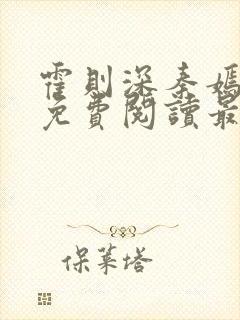 霍則深秦嫣
免費閱讀最
保萊塔